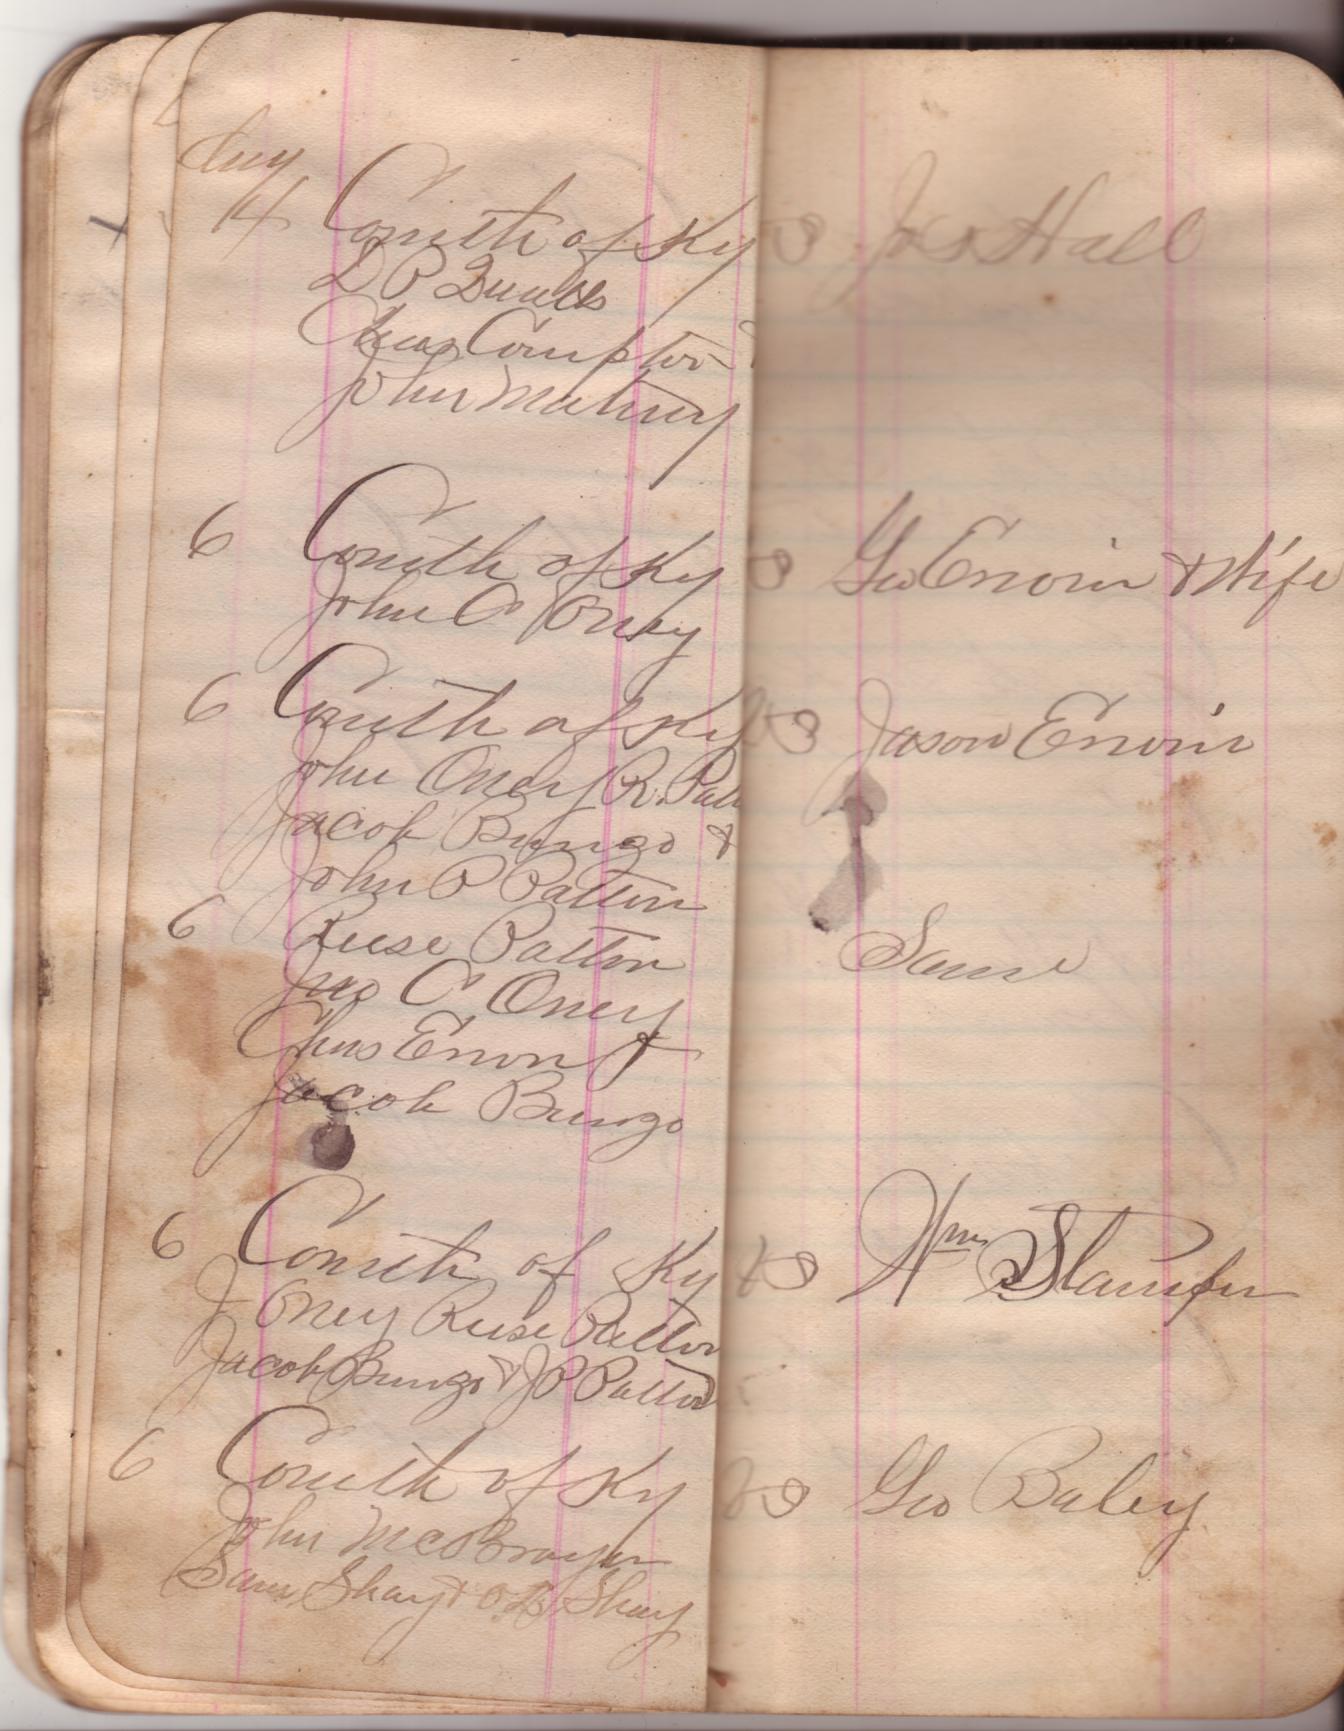 Aug
14 Comth of Ky vs Jas Hall
D P
Chas Compton &
John Mabrey
6 Comth of Ky vs Geo Ervin & Wife
John C Oney
6 Comth of Ky vs Jason Ervin
John Oney R. Patt
Jacob Bungo &
John P Patton
6 Reese Patton Same
Jno C Oney
Chas Ervin &
Jacob Bungo
6 Comth of Ky vs Wm Stamper
J Oney Reese Patton
Jacob Bungo & J P Patton
6 Comth of Ky vs Geo Baley
John McBrayer
Sam Shay & Shay